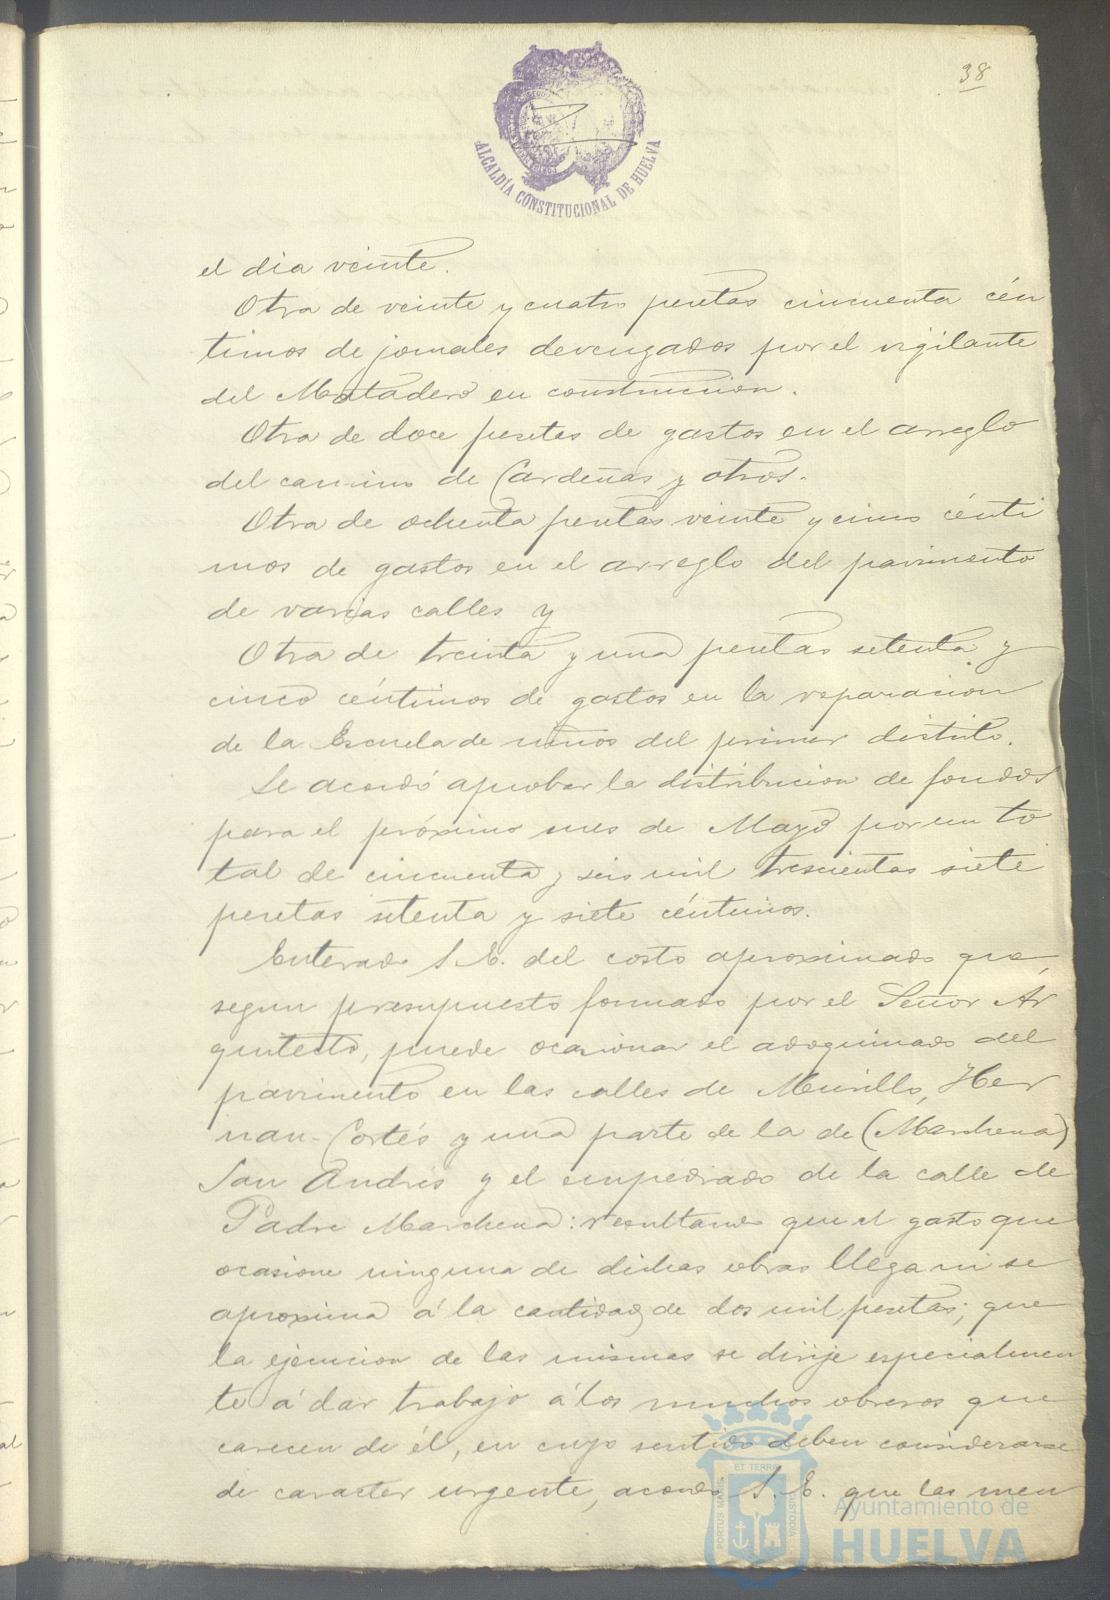 38
ALCALDÍA CONSTITUCIONAL DE HUELVA
el dia veinte.
Otra de veinte y cuatro pesetas cincuenta cén
timos de jornales devengados por el vigilante
del Matadero en construccion.
Otra de doce pesetas de gastos en el arreglo
del camino de Cardeñas y otros.
Otra de ochenta pesetas veinte y cinco cénti
mos de gastos en el arreglo del pavimento
de varias calles y
Otra de treinta y una pesetas setenta y
cinco céntimos de gastos en la reparacion
de la Escuela de niños del primer distrito.
Se acordó aprobar la distribucion de fondos
para el próximo mes de Mayo por un to
tal de cincuenta y seis mil trescientas siete
pesetas setenta y siete céntimos.
Enterado S. E. del costo aproximado que,
segun presupuesto formado por el Señor Ar
quitecto, puede ocasionar el adoquinado del
pavimento en las calles de Murillo, Her
nan-Cortés y una parte de la de (Marchena)
San Andrés y el empedrado de la calle de
Padre Marchena: resultando que el gasto que
ocasione ninguna de dichas obras llega ni se
aproxima á la cantidad de dos mil pesetas; que
la ejecucion de las mismas se dirije especialmen
te á dar trabajo á los muchos obreros que
carecen de él, en cuyo sentido deben considerarse
de caracter urgente, acordó S. E. que las men
PORTUS MARIS ET TERRAE CUSTODIA
Ayuntamiento de
HUELVA